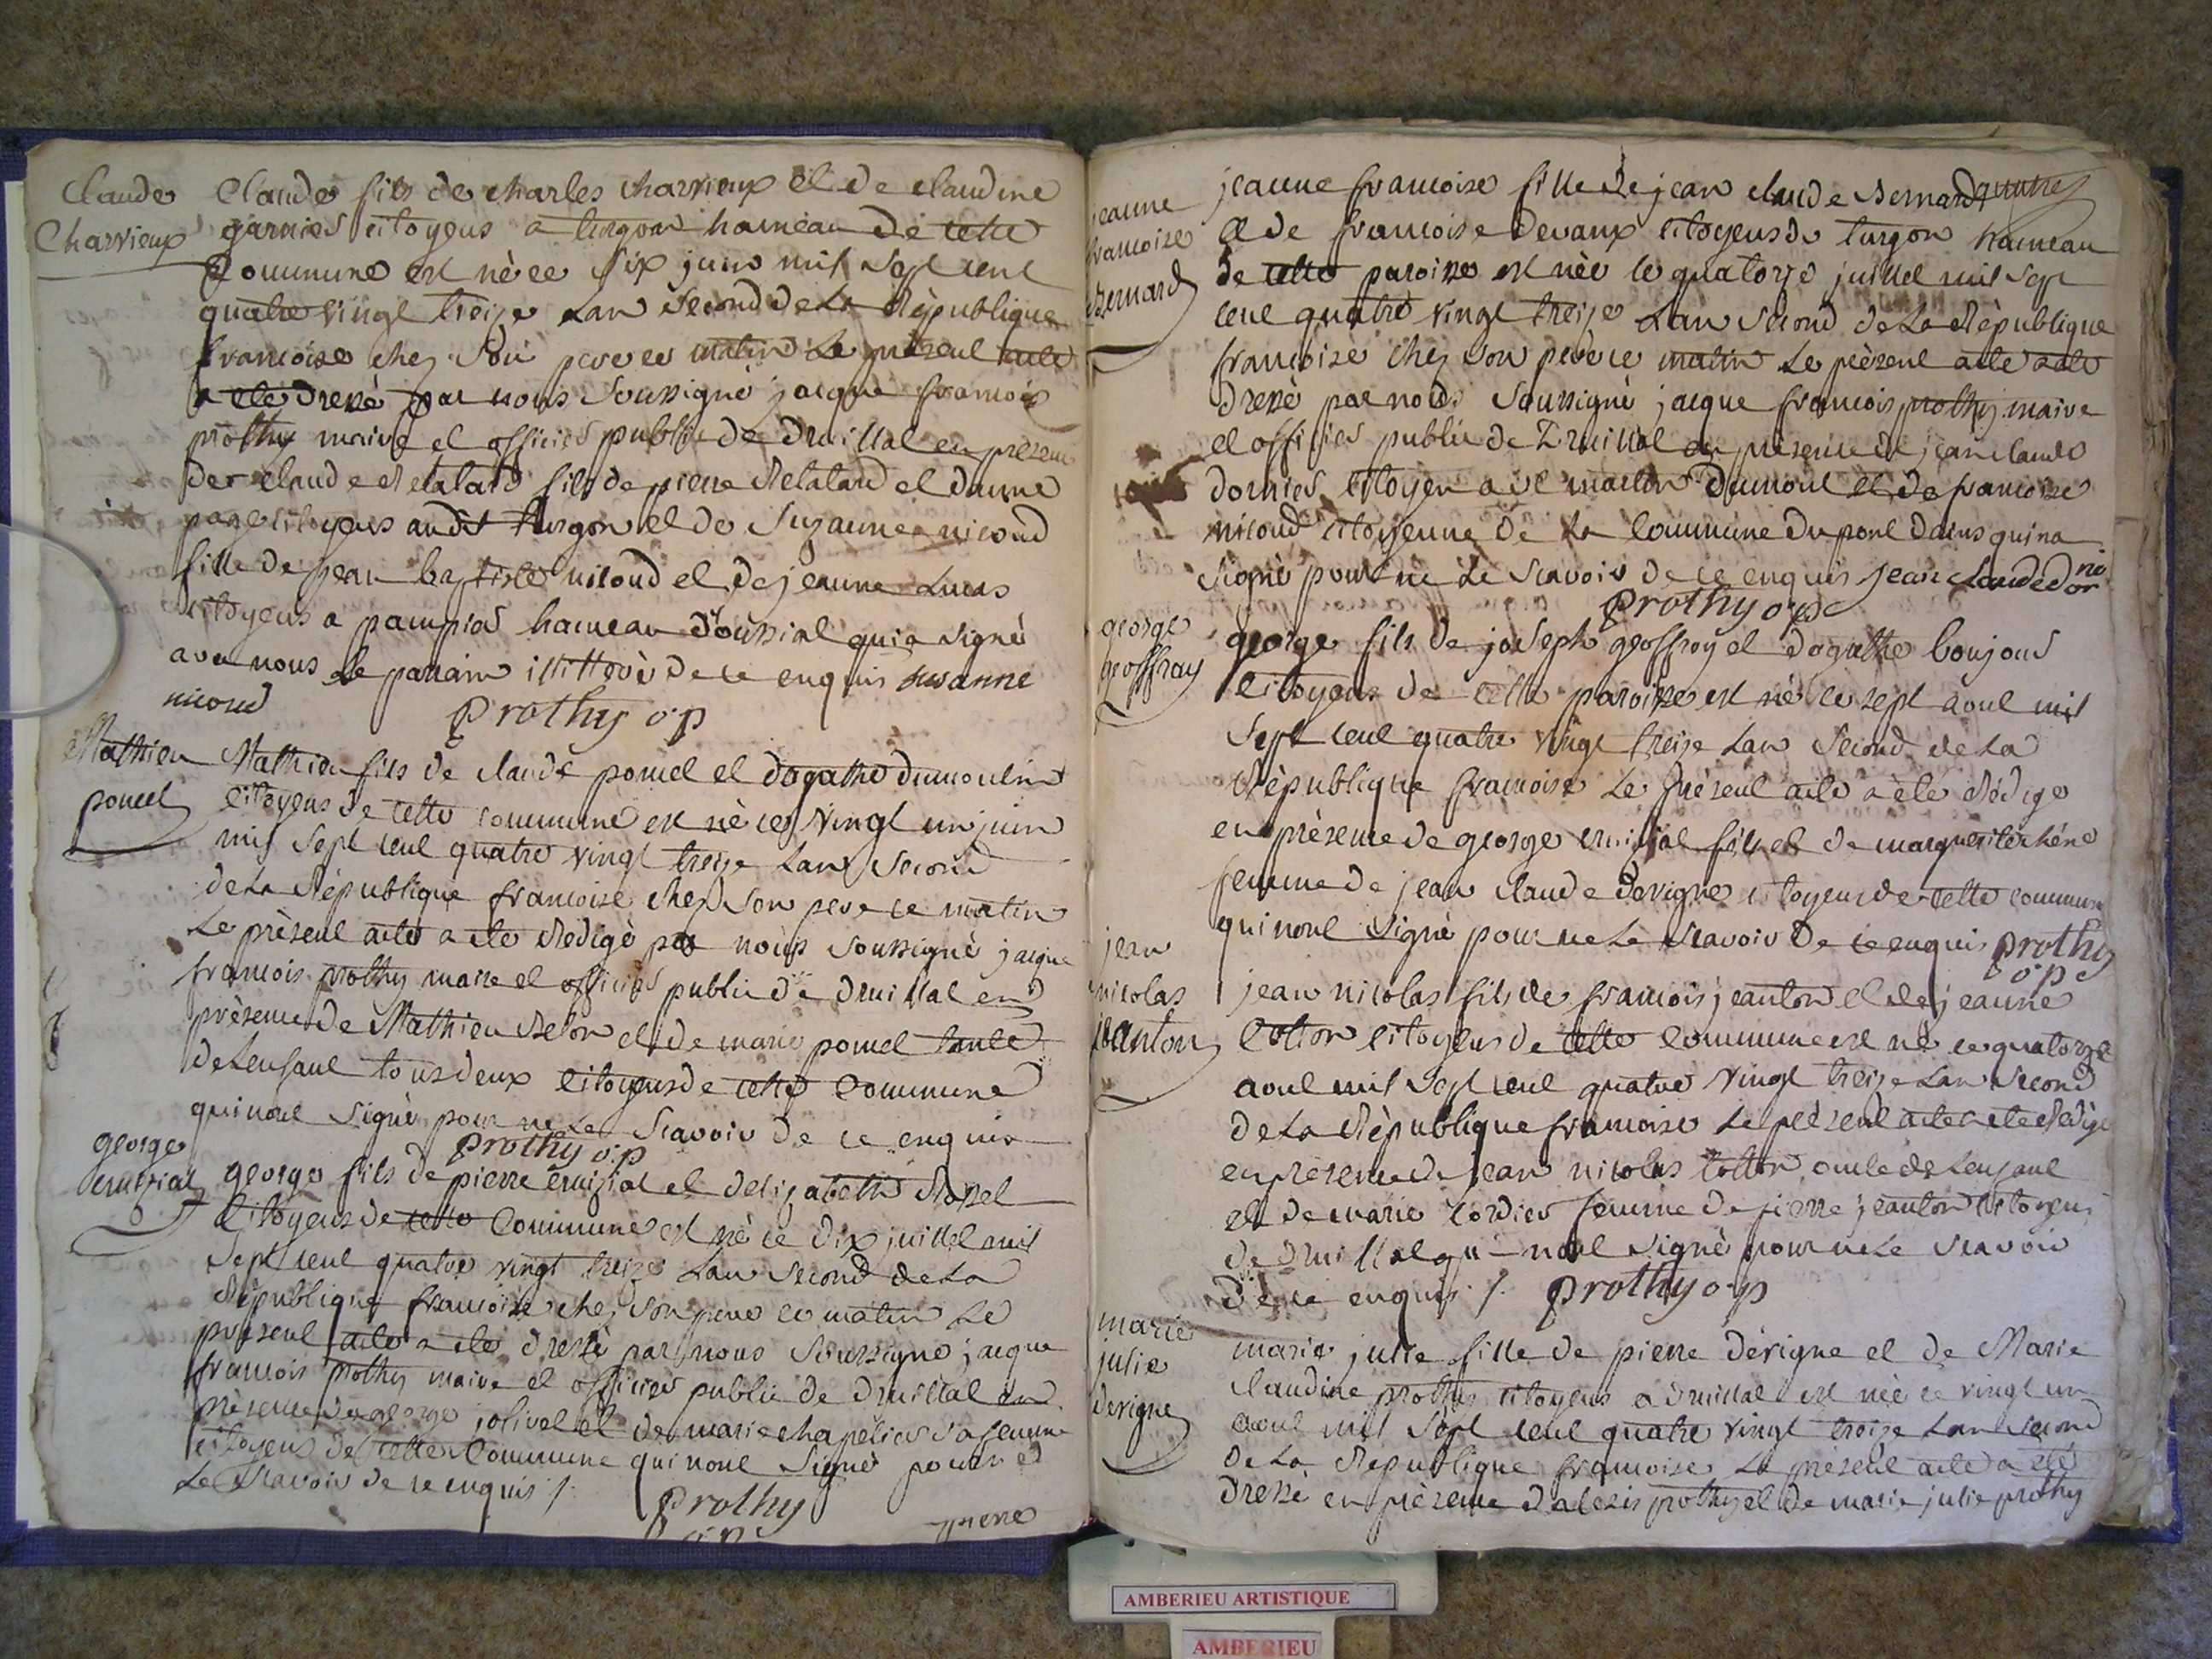 Claude
Charvieux
Claude fils de charles charvieux et de claudine
garnier citoyens a turgon hameau de cette
Commune est né ce six juin mil sept cent
quatre vingt treize Lan second de la République
francoise chez son pere ce matin Le présent acte
a été dressé par nous soussigné jacque francois
prothy maire et officier public de druillat en présence
de claude Retatard fils de pierre Retatard et danne
page citoyens audit turgon et de Suzanne nicoud
fille de jean baptiste nicoud et de jeanne Lucas
citoyens a pampier hameau doussiat qui a signé
avec nous Le parrain illittéré de ce enquis suzanne
nicoud
Prothy o.p
Mathieu
poncet
Mathieu fils de claude poncet et dagathe dumoulin
citoyens de cette commune est né ce vingt un juin
mil sept cent quatre vingt treize Lan second
de la République francoise chez son pere ce matin
Le présent acte a été Redigé par nous soussigné jacque
francois prothy maire et officier public de druillat en
présence de Mathieu et de marie poncet tante
de Lenfant tous deux citoyens de cette Commune
qui nont signé pour ne Le scavoir de ce enquis
Prothy o.p
george
cruiziat
george fils de pierre cruiziat et delizabeth
citoyens de cette Commune est né ce dix juillet mil
sept cent quatre vingt treize Lan second de la
République francoise chez son pere ce matin Le
présent acte a été dressé par nous soussigné jacque
francois prothy maire et officier public de druillat en
présence de george jolivet et de marie chapelier sa femme
citoyens de cette Commune qui nont signé pour ne
Le scavoir de ce enquis /.
Prothy
o.p
pierre
jeanne
francoise
Bernard
jeanne francoise fille de jean claude Bernard
et de francoise Devaux citoyens de turgon hameau
de cette paroisse est née le quatorze juillet mil sept
cent quatre vingt treize Lan second de la République
francoise chez son pere ce matin Le présent acte a été
dressé par nous soussigné jacque francois prothy maire
et officier public de Druillat en présence de jean claude
dornier citoyen a st martin Dumont et de francoise
nicoud citoyenne de la Commune du pont dains qui na
signé pour ne Le scavoir de ce enquis jean claude dor
nié
Prothy o.p
george
geoffray
george fils de joseph geoffroy et dagathe boujoud
citoyens de cette paroisse est né ce sept aout mil
sept cent quatre vingt treize Lan second de la
République francoise Le présent acte a été Rédigé
en présence de george cruiziat fils et de marguerite chêne
femme de jean claude devigne citoyens de cette commune
qui nont signé pour ne Le scavoir de ce enquis prothy
o.p
jean
nicolas
jeanton
jean nicolas fils de francois jeanton et de jeanne
Cotton citoyens de cette commune est né ce quatorze
aout mil sept cent quatre vingt treize Lan second
de La République francoise Le présent acte a été Redigé
en présence de jean nicolas Cotton oncle de Lenfant
et de marie cordier femme de pierre jeanton citoyens
de druillat qui nont signé pour ne Le scavoir
de ce enquis /. prothy o.p
marie
julie
devigne
marie julie fille de pierre dévigne et de Marie
claudine prothy citoyens a druillat est née ce vingt un
aout mil sept cent quatre vingt treize Lan second
de La République francoise Le présent acte a été
dressé en présence dalexis prothy et de marie julie prothy
AMBERIEU ARTISTIQUE
AMBERIEU